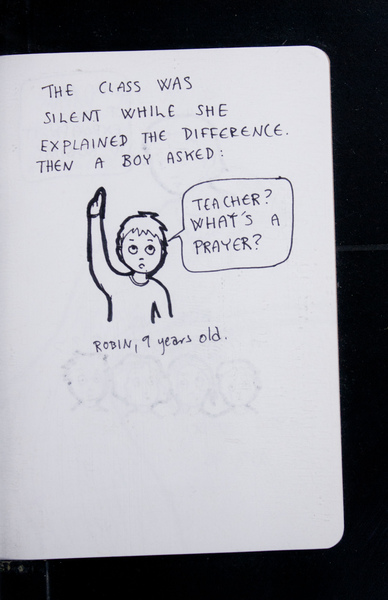 THE CLASS WAS
SILENT WHILE SHE
EXPLAINED THE DIFFERENCE.
THEN A BOY ASKED:
TEACHER?
WHAT'S A
PRAYER?
ROBIN, 9 years old.